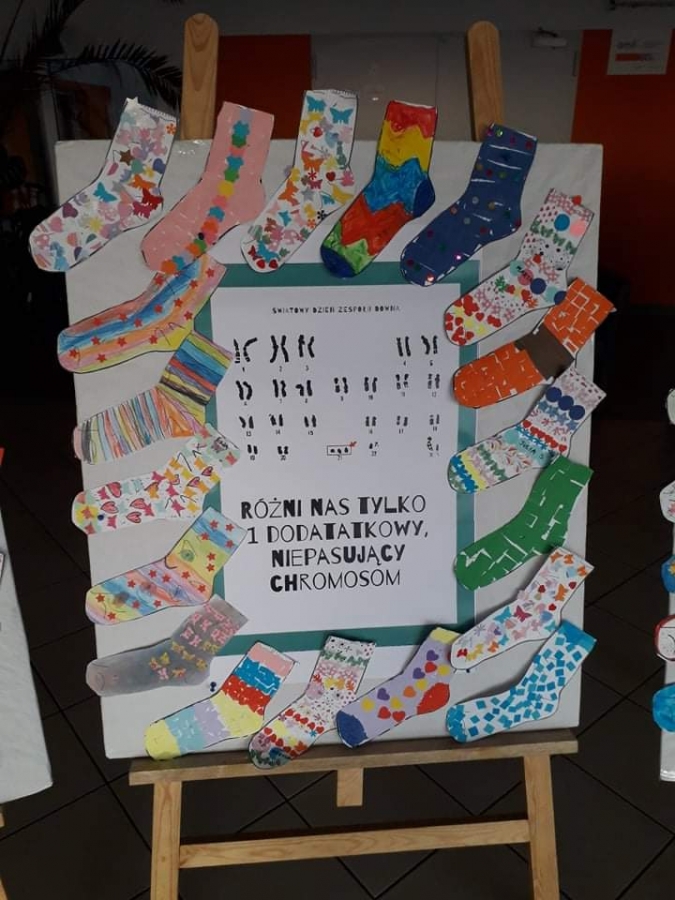 ŚWIATOWY DZIEŃ ZESPOŁU DOWNA
RÓŻNI NAS TYLKO
1 DODATATKOWY,
NIEPASUJĄCY
CHROMOSOM